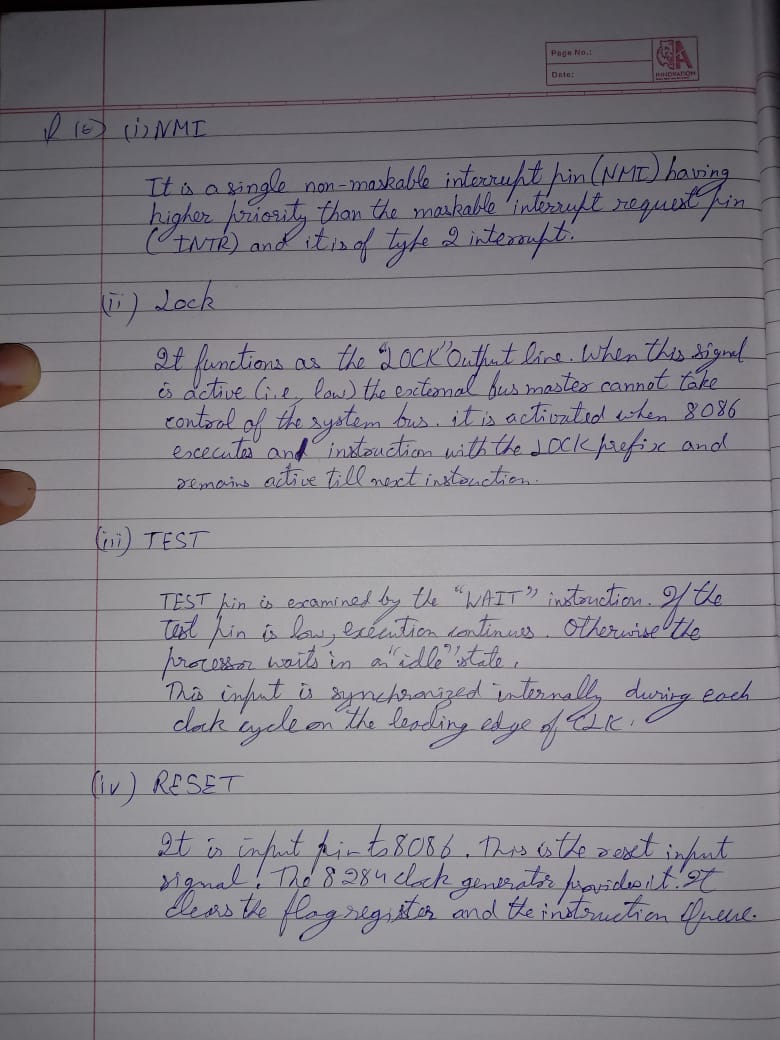 Page No.:
Date:
INNOVATION
(i) NMI
It is a single non-maskable interrupt pin (NMI) having
higher priority than the maskable interrupt request pin
(INTR) and it is of type 2 interrupt.
(ii) Lock
It functions as the "LOCK" Output line. When this signal
is active (i.e, low) the external bus master cannot take
control of the system bus. it is activated when 8086
excecutes and instruction with the LOCK prefix and
remains active till next instruction.
(iii) TEST
TEST pin is examined by the "WAIT" instruction. If the
Test pin is low, execution continues. Otherwise the
processor waits in an "idle" state.
This input is synchronized internally during each
clock cycle on the leading edge of CLK.
(iv) RESET
It is input pin to 8086. This is the reset input
signal. The 8284 clock generator provides it. It
clears the flag register and the instruction Queue.